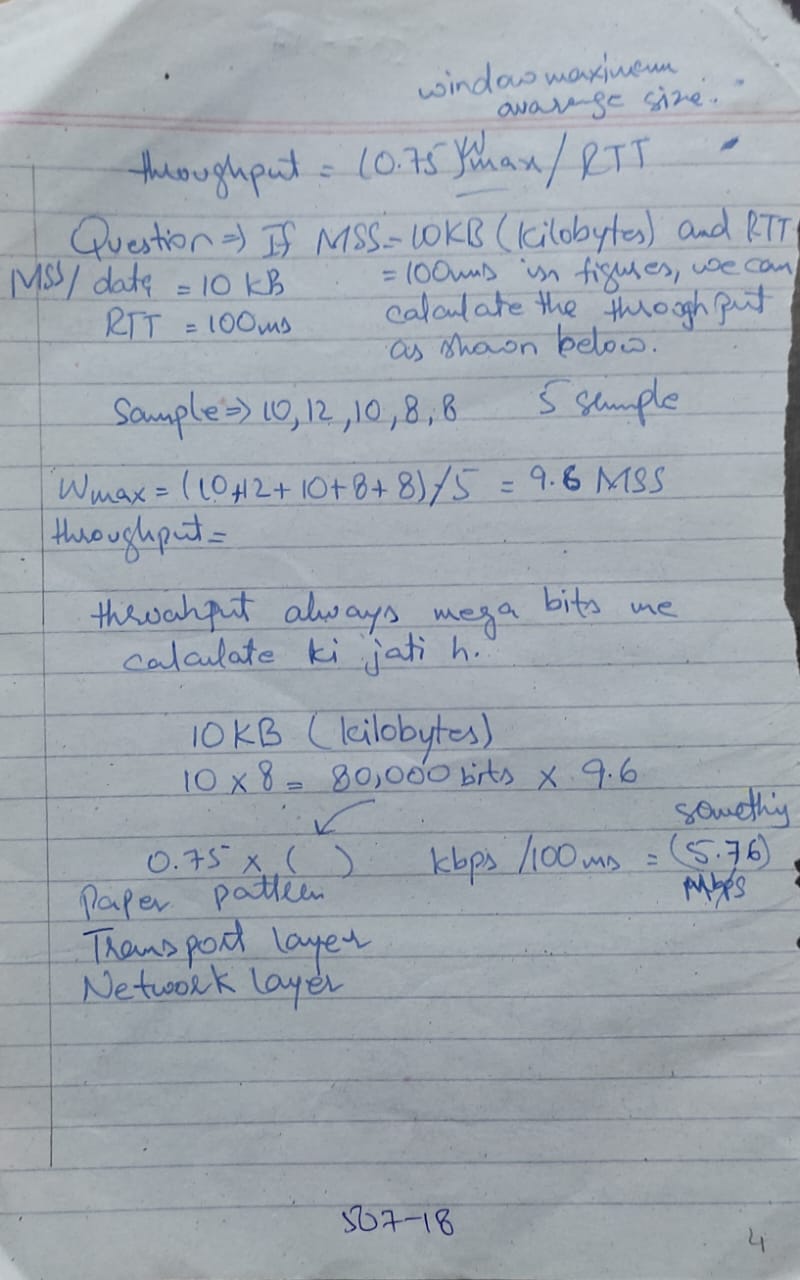 window maximum
avarenge size.
throughput = (0.75) Wmax / RTT
Question => If MSS = 10KB (kilobytes) and RTT
MSS/ data = 10 KB = 100ms in figures, we can
RTT = 100ms calculate the throughput
as shown below.
Sample => 10, 12, 10, 8, 8 5 sample
Wmax = (10+12+10+8+8)/5 = 9.6 MSS
throughput =
throahput always mega bits me
calculate ki jati h.
10KB (kilobytes)
10 x 8 = 80,000 bits x 9.6
somethig
0.75 x ( ) kbps /100 ms = (5.76)
Mbps
Paper pattern
Transport layer
Network layer
4